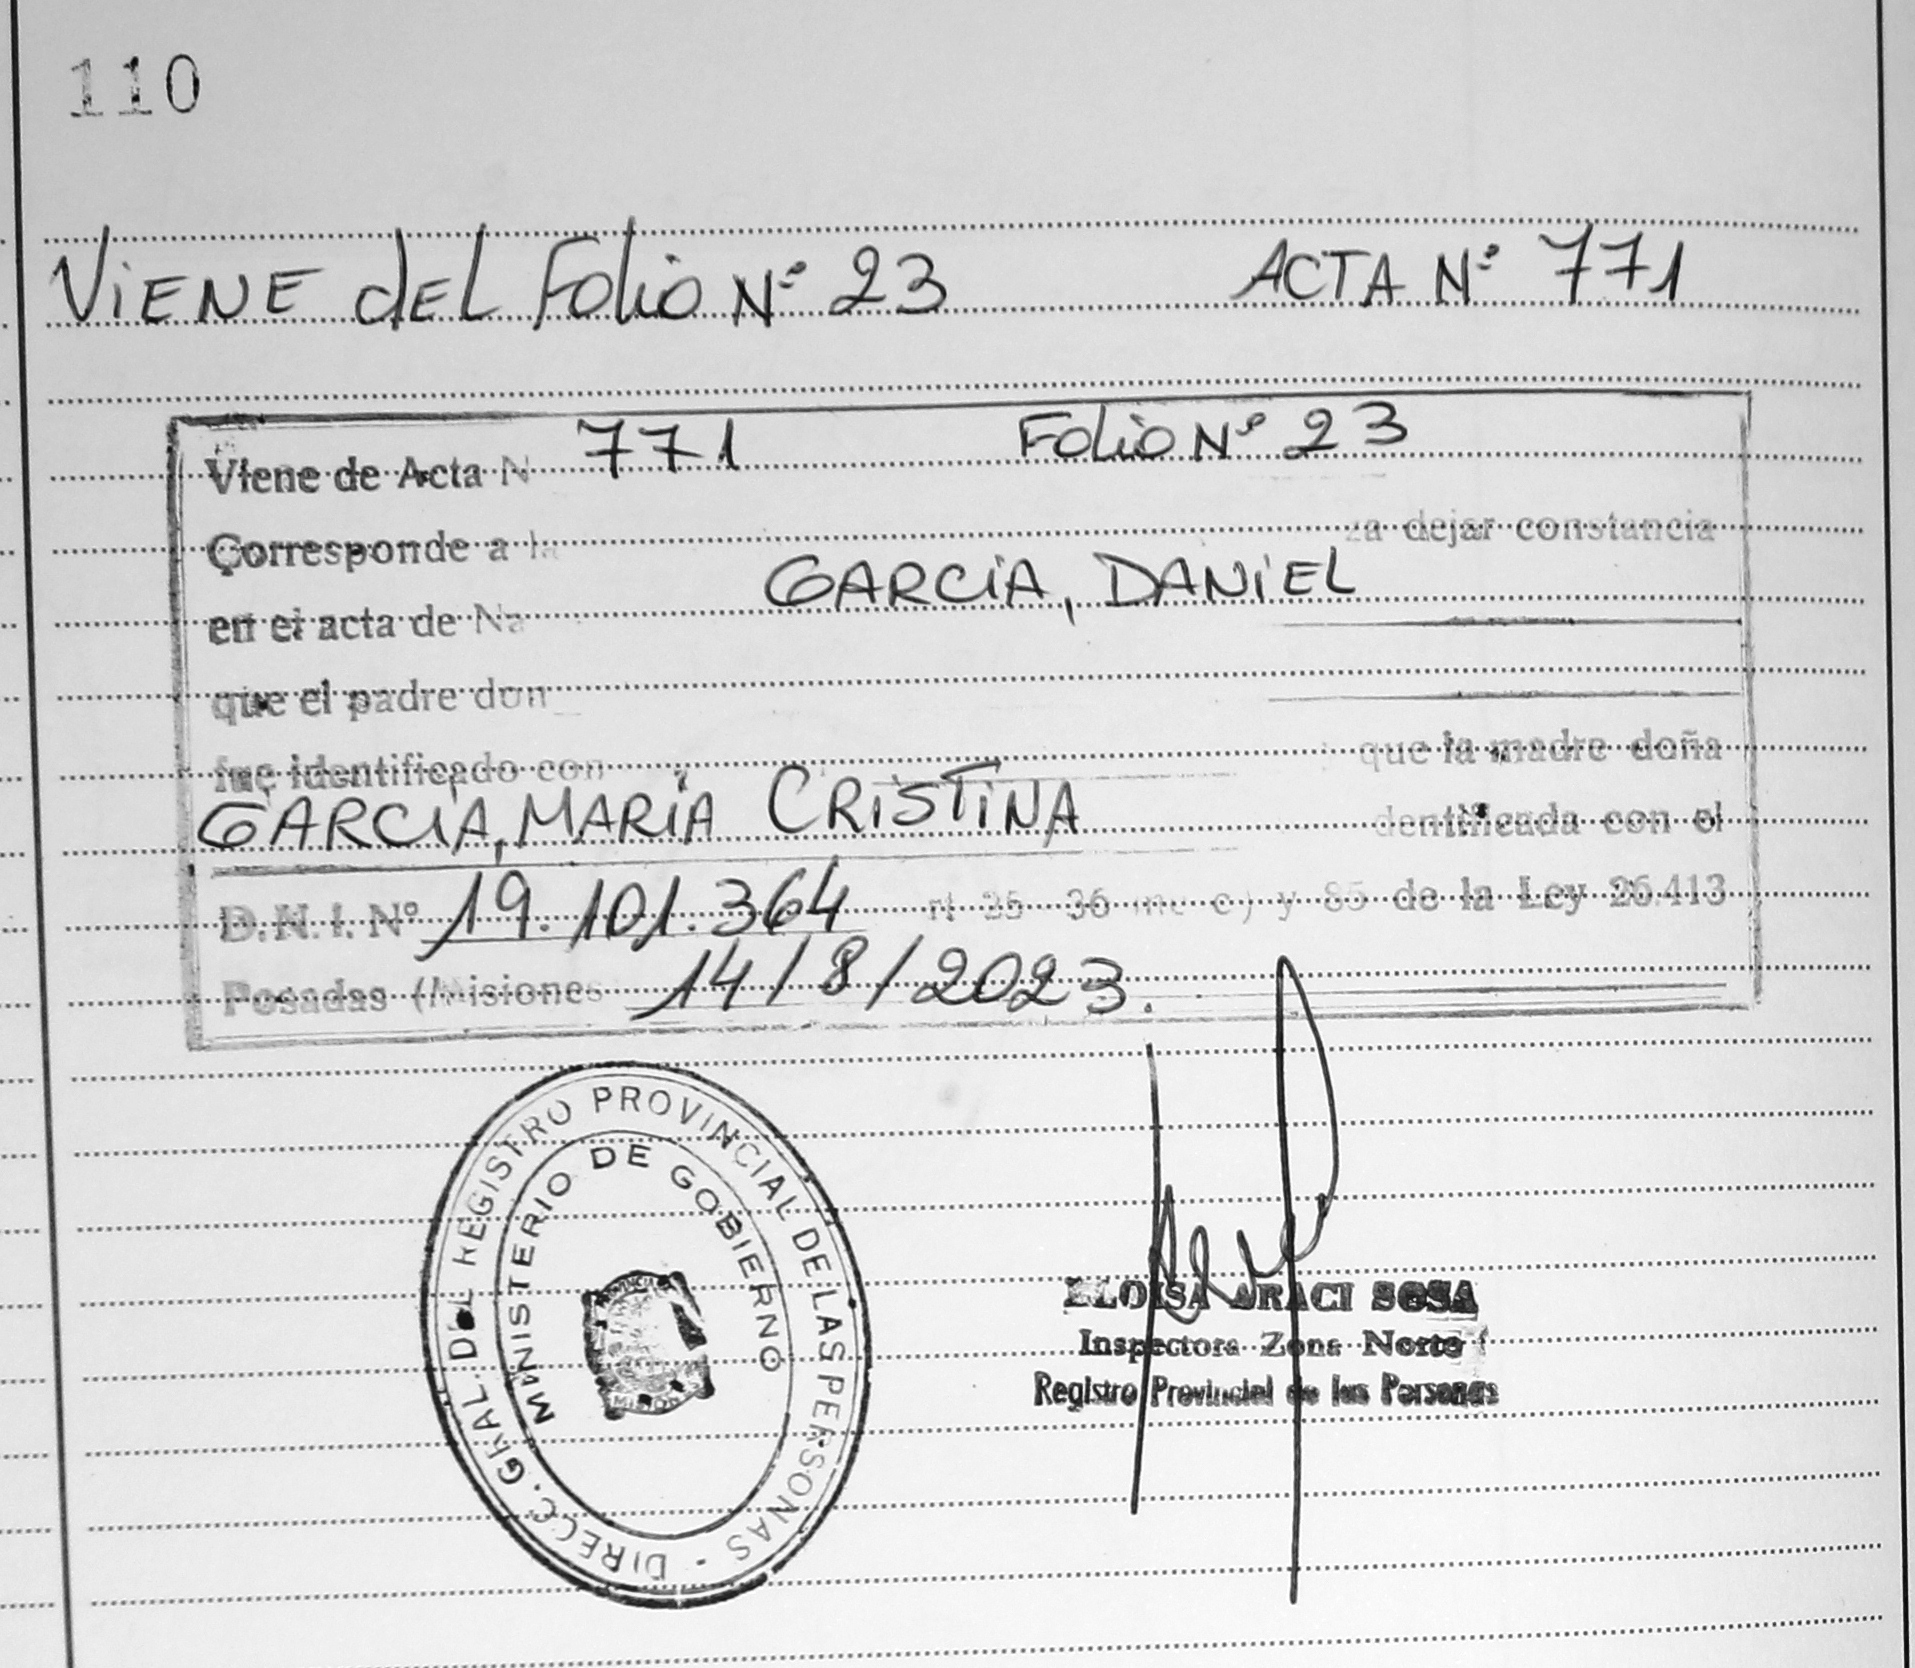 110
ViENE dEL Folio Nº 23 ACTA Nº 771
Viene de Acta N 771 Folio Nº 23
Corresponde a la za dejar constancia
en el acta de Na GARCIA, DANiEL
que el padre don
fue identificado con que la madre doña
GARCIA, MARIA CRiSTiNA dentificada con el
D.N.I. Nº 19.101.364 rt 25 36 inc c) y 85 de la Ley 26.413
Posadas (Misiones 14/8/2023.
DIRECC. GRAL. DEL REGISTRO PROVINCIAL DE LAS PERSONAS -
MINISTERIO DE GOBIERNO
ELOISA ARACI SOSA
Inspectora Zona Norte
Registro Provincial de las Personas